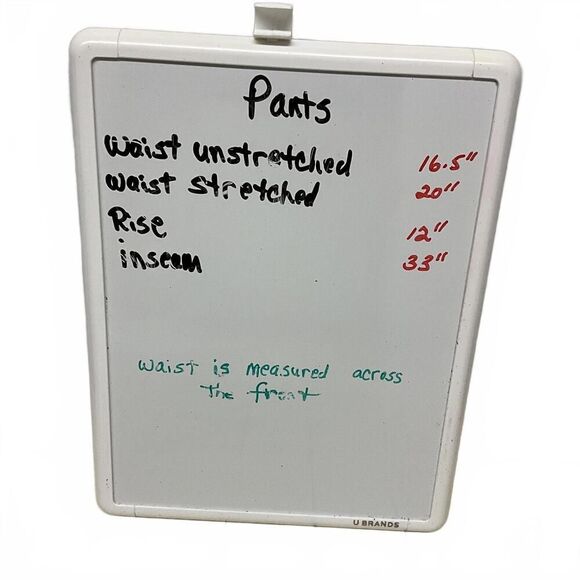 Pants
waist unstretched 16.5"
waist stretched 20"
Rise 12"
inseam 33"
waist is measured across
the front
U BRANDS